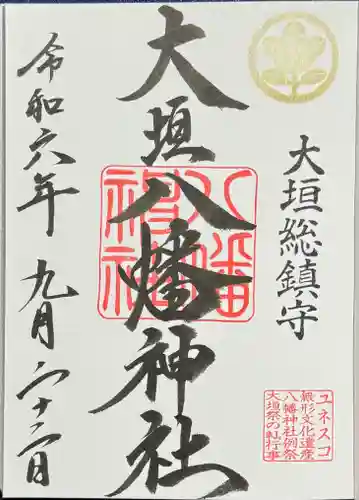 大垣総鎮守
ユネスコ
無形文化遺産
八幡神社例祭
大垣祭の軕行事
大垣八幡神社
八幡
神社
令和六年 九月二十二日